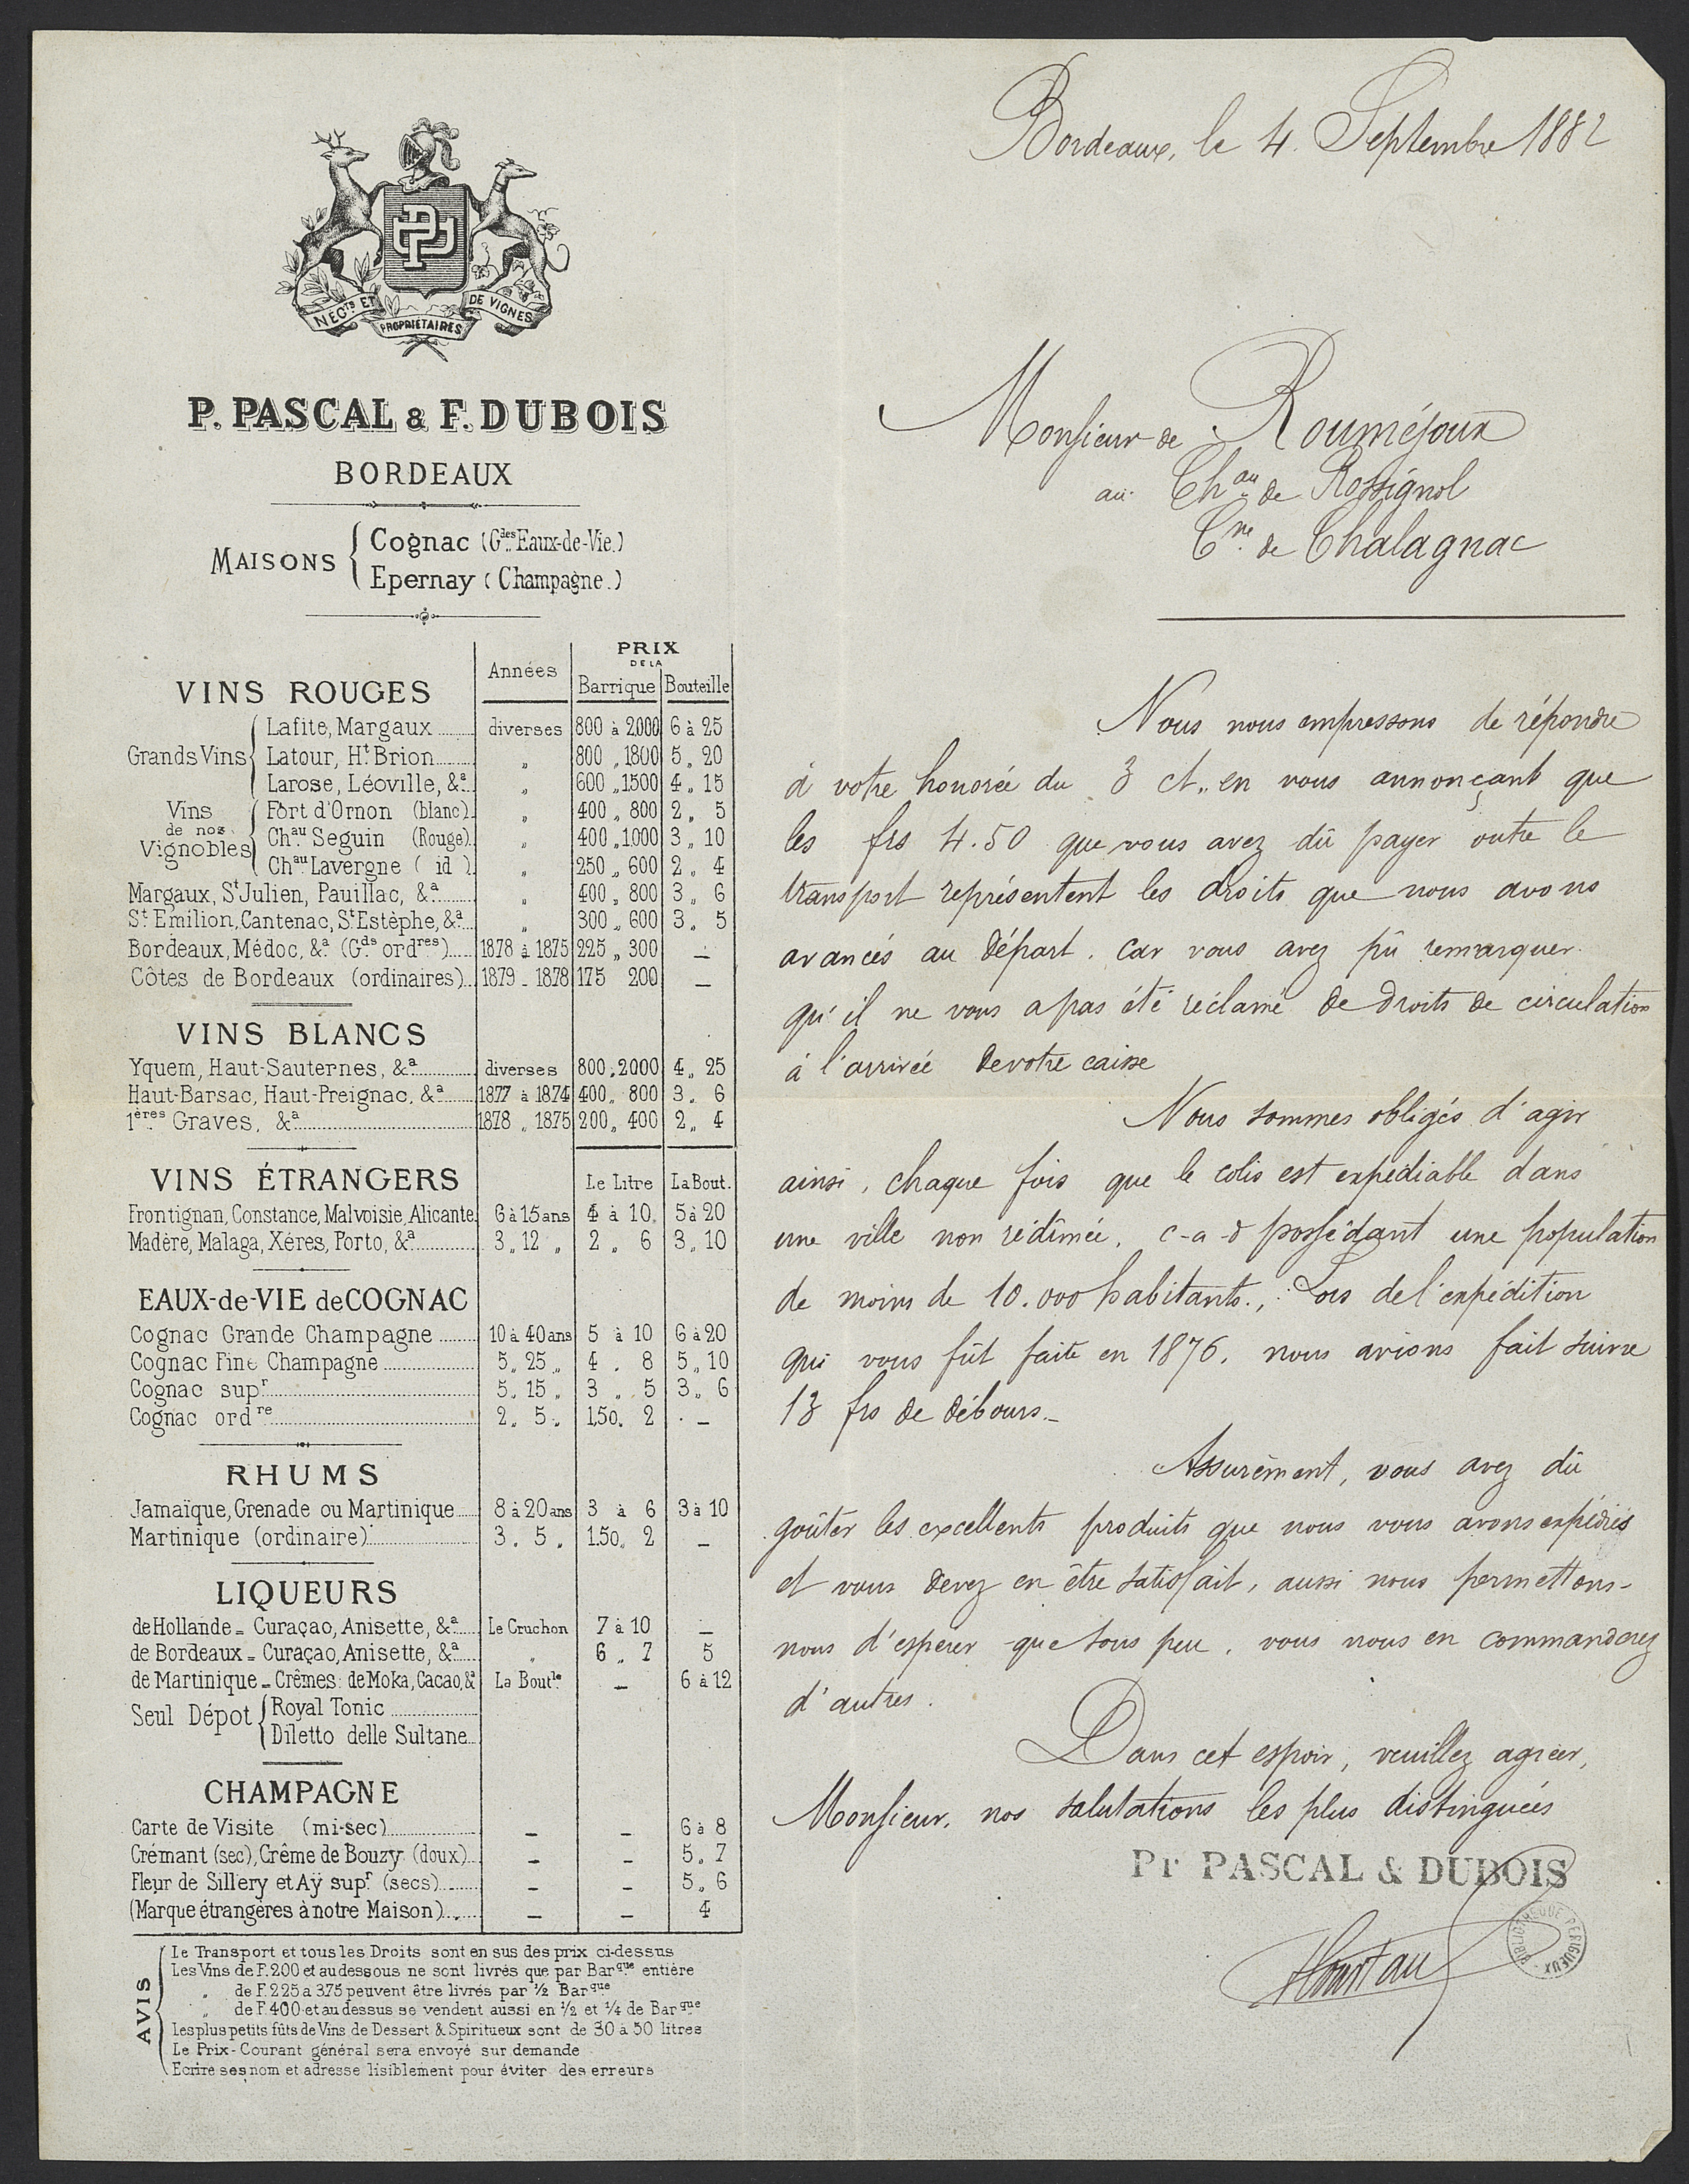 NÉGTS ET PROPRIÉTAIRES DE VIGNES
P. PASCAL & F. DUBOIS
BORDEAUX
MAISONS
Cognac (Gdes Eaux-de-Vie.)
Epernay (Champagne.)
Années PRIX DE LA
Barrique Bouteille
VINS ROUGES
Grands Vins
Lafite, Margaux diverses 800 à 2000 6 à 25
Latour, Ht Brion „ 800 „ 1800 5 „ 20
Larose, Léoville, &a „ 600 „ 1500 4 „ 15
Vins de nos Vignobles
Fort d'Ornon (blanc) „ 400 „ 800 2 „ 5
Chau Seguin (Rouge) „ 400 „ 1.000 3 „ 10
Chau Lavergne ( id ) „ 250 „ 600 2 „ 4
Margaux, St Julien, Pauillac, &a „ 400 „ 800 3 „ 6
St Emilion, Cantenac, St Estèphe, &a „ 300 „ 600 3 „ 5
Bordeaux, Médoc, &a (Gds ordres) 1878 à 1875 225 „ 300 —
Côtes de Bordeaux (ordinaires) 1879 - 1878 175 200 —
VINS BLANCS
Yquem, Haut-Sauternes, &a diverses 800 „ 2000 4 „ 25
Haut-Barsac, Haut-Preignac, &a 1877 à 1874 400 „ 800 3 „ 6
1ères Graves, &a 1878 „ 1875 200 „ 400 2 „ 4
VINS ÉTRANGERS Le Litre La Bout.
Frontignan, Constance, Malvoisie, Alicante 6 à 15 ans 4 à 10 5 à 20
Madère, Malaga, Xérès, Porto, &a 3 „ 12 „ 2 „ 6 3 „ 10
EAUX-de-VIE de COGNAC
Cognac Grande Champagne 10 à 40 ans 5 à 10 6 à 20
Cognac Fine Champagne 5 „ 25 „ 4 „ 8 5 „ 10
Cognac supr 5 „ 15 „ 3 „ 5 3 „ 6
Cognac ordre 2 „ 5 „ 1,50 „ 2 —
RHUMS
Jamaïque, Grenade ou Martinique 8 à 20 ans 3 à 6 3 à 10
Martinique (ordinaire) 3 „ 5 „ 1.50 „ 2 —
LIQUEURS
de Hollande = Curaçao, Anisette, &a Le Cruchon 7 à 10 —
de Bordeaux = Curaçao, Anisette, &a „ 6 „ 7 5
de Martinique = Crêmes: de Moka, Cacao, &a La Boutle — 6 à 12
Seul Dépot
Royal Tonic
Diletto delle Sultane
CHAMPAGNE
Carte de Visite (mi-sec) — — 6 à 8
Crémant (sec), Crême de Bouzy (doux) — — 5 „ 7
Fleur de Sillery et Aÿ supr (secs) — — 5 „ 6
(Marque étrangères à notre Maison) — — 4
AVIS
Le Transport et tous les Droits sont en sus des prix ci-dessus
Les Vins de F. 200 et au dessous ne sont livrés que par Barque entière
„ de F. 225 a 375 peuvent être livrés par ½ Barque
„ de F. 400 et au dessus se vendent aussi en ½ et ¼ de Barque
Les plus petits fûts de Vins de Dessert & Spiritueux sont de 30 à 50 litres
Le Prix-Courant général sera envoyé sur demande
Ecrire ses nom et adresse lisiblement pour éviter des erreurs
Bordeaux, le 4 Septembre 1882
Monsieur de Rouméjoux
au Chau de Rossignol
Cne de Chalagnac
Nous nous empressons de répondre
à votre honorée du 3 ct. en vous annonçant que
les frs 4.50 que vous avez dû payer outre le
transport représentent les droits que nous avons
avancés au départ, car vous avez pû remarquer
qu'il ne vous a pas été réclamé de droits de circulation
à l'arrivée de votre caisse
Nous sommes obligés d'agir
ainsi, chaque fois que le colis est expédiable dans
une ville non rédimée, c-a-d possédant une population
de moins de 10.000 habitants., Lors de l'expédition
qui vous fût faite en 1876, nous avions fait suivre
13 frs de débours.-
Assurément, vous avez dû
goûter les excellents produits que nous vous avons expédiés
et vous devez en être satisfait, aussi nous permettons-
nous d'espérer que sous peu, vous nous en commanderez
d'autres.
Dans cet espoir, veuillez agréer,
Monsieur, nos salutations les plus distinguées
Pr PASCAL & DUBOIS
BIBLIOTHÈQUE PÉRIGUEUX